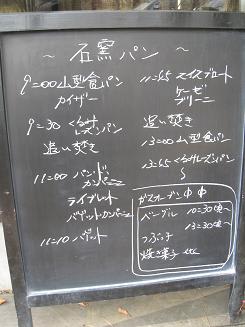 ～ 石窯パン ～
9:00 山型食パン
カイザー
9:30 くるみ
レーズンパン
追い焚き
11:00 パン・ド
カンパーニュ
ライブレット
バゲットカンパーニュ
11:10 バゲット
11:45 マイスブロート
ケーゼ
ブリーニ
追い焚き
13:00 山型食パン
13:45 くるみレーズンパン
～
ガスオーブン中中
ベーグル 10:30頃～
13:30頃～
つぶっ子
焼き菓子 etc